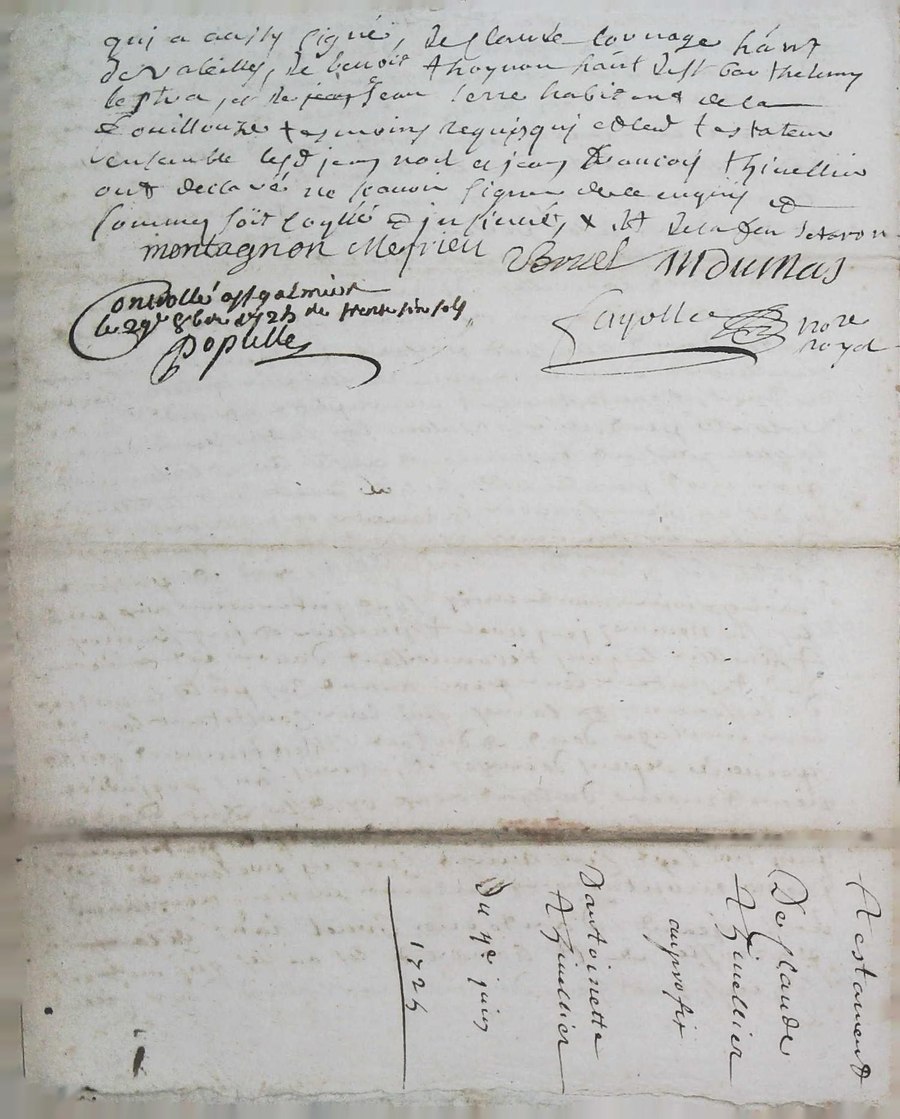 qui a aussy signé, de Claude
de Valeille, de benoit Thoynon hant de st barthelemy
lestra, et de Jean Serre habitant de la
Fouillouze tesmoins requis qui et led testateur
ensemble lesd jean noel et jean francois thivellier
ont declaré ne scavoir signer de ce enquis et
sommes soit et
montagnon Merieu Bornel Mdumas
Controllé a st galmier
le 29e 8bre 1725
Populle
Fayolle nore
royal
Testament
De Claude
Thivellier
au profit
Dantoinette
Thivellier
Du 4e juin
1725